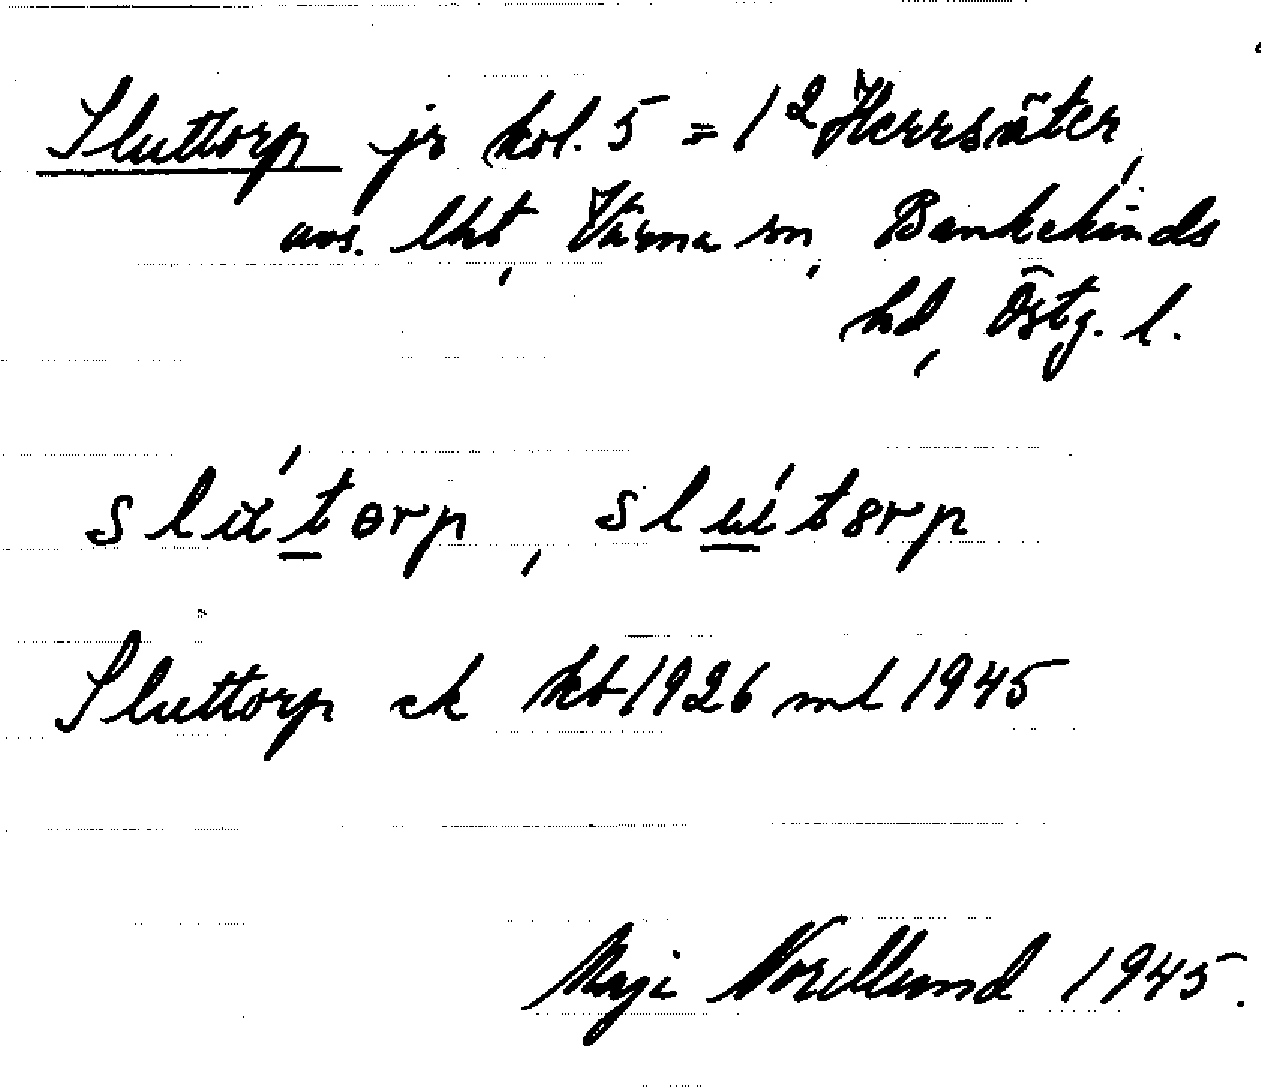 Sluttorp jr kol. 5 = 1² Herrsäter,
avs. lht, Värna sn, Bankekinds
hd, Östg. l.
slút̲ɵrp, slú̲tɵrp
Sluttorp ek kb 1926 ml 1945
Maji Nordlund 1945.